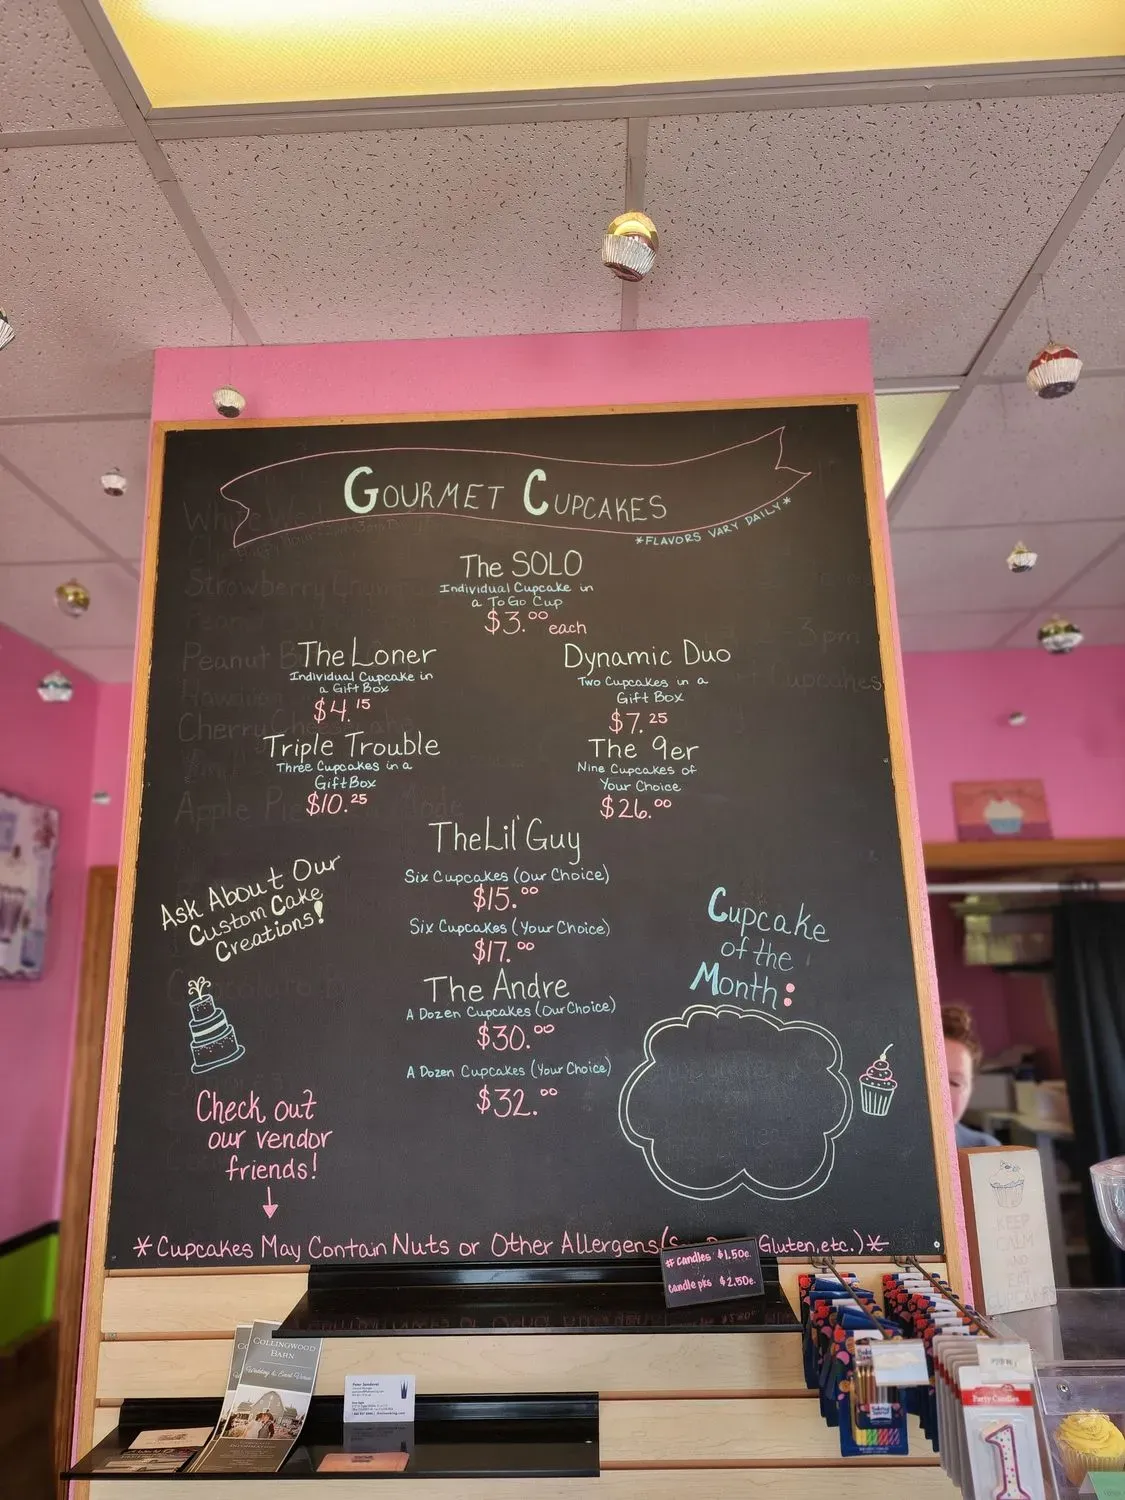 GOURMET CUPCAKES
*FLAVORS VARY DAILY*
The SOLO
Individual Cupcake in
a To Go Cup
$3.00 each
The Loner
Individual Cupcake in
a Gift Box
$4.15
Dynamic Duo
Two Cupcakes in a
Gift Box
$7.25
Triple Trouble
Three Cupcakes in a
Gift Box
$10.25
The 9er
Nine Cupcakes of
Your Choice
$26.00
The Lil' Guy
Six Cupcakes (Our Choice)
$15.00
Six Cupcakes (Your Choice)
$17.00
The Andre
A Dozen Cupcakes (Our Choice)
$30.00
A Dozen Cupcakes (Your Choice)
$32.00
Ask About Our
Custom Cake
Creations!
Cupcake
of the
Month:
Check out
our vendor
friends!
*Cupcakes May Contain Nuts or Other Allergens( Gluten, etc.)*
# candles $1.50e.
candle pks $2.50e.
Strawberry
Peanut
Hawaiian
Cherry Cheesecake
Apple Pie
3pm
Cupcakes
KEEP
CALM
AND
EAT
COLLINGWOOD
BARN
Wedding & Event Venue
Peter Sandoval
Party Candles
1